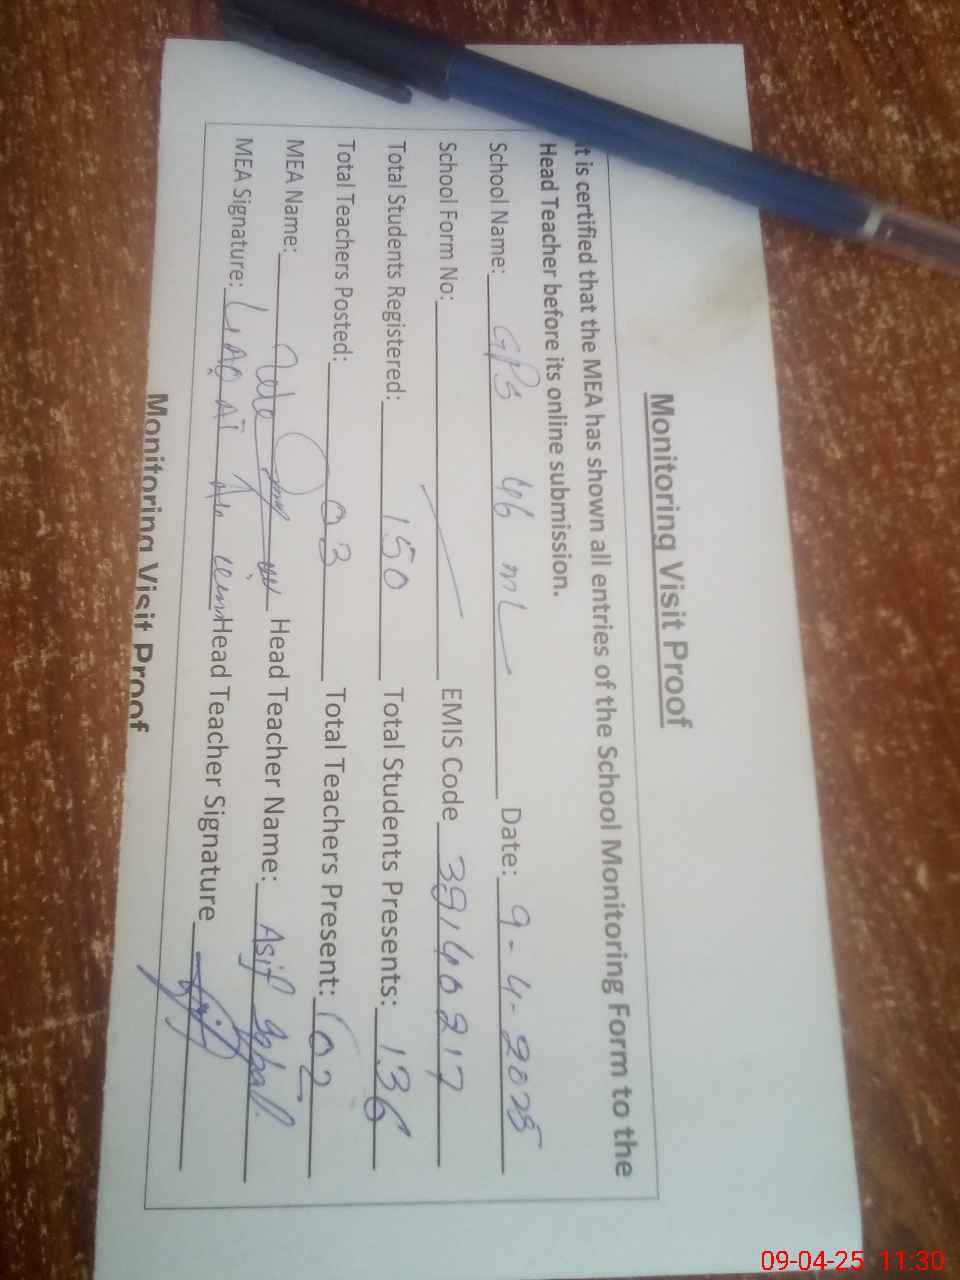 Monitoring Visit Proof
t is certified that the MEA has shown all entries of the School Monitoring Form to the
Head Teacher before its online submission.
School Name: GPS 46 ML Date: 9-4-2025
School Form No: EMIS Code 39140217
Total Students Registered: 150 Total Students Presents: 136
Total Teachers Posted: 03 Total Teachers Present: 02
MEA Name: Head Teacher Name: Asif Iqbal
MEA Signature: LIAQAT Head Teacher Signature
Monitoring Visit Proof
09-04-25 11:30